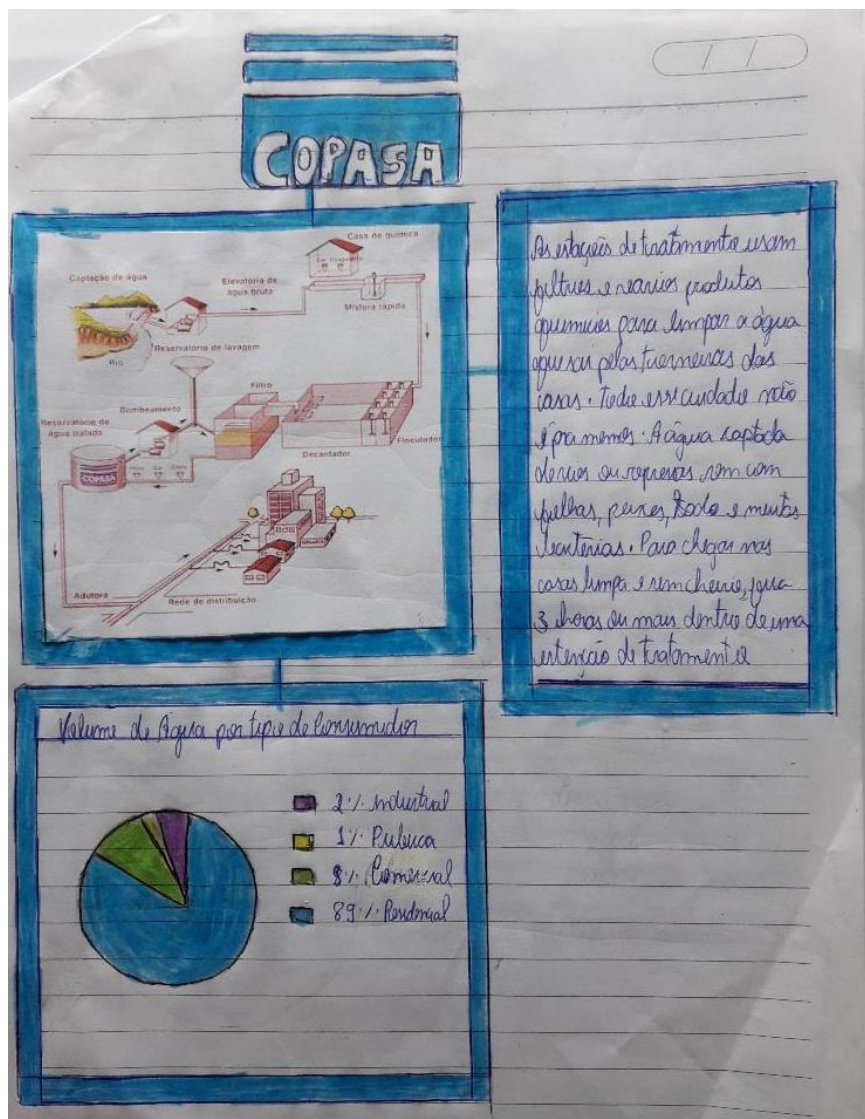 COPASA
Captação de água
Elevatória de
água bruta
Casa de química
Cal Coagulante
Mistura rápida
Rio
Reservatório de lavagem
Filtro
Bombeamento
Reservatório de
água tratada
COPASA
Flúor Cal Cloro
Floculador
Decantador
Adutora
Rede de distribuição
As estações de tratamento usam
filtros e varios produtos
químicos para limpar a água
que sai pelas torneiras das
casas. Todo esse cuidado não
é pra menos. A água captada
de rios ou represas vem com
folhas, peixes, lodo e muitas
bactérias. Para chegar nas
casas limpa e sem cheiro,
3 horas ou mais dentro de uma
de tratamento
Volume de Água por tipo de Consumidor
2% industrial
1% Publica
8% Comercial
89% Residencial